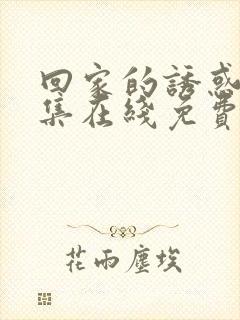 回家的誘惑
集在綫免費
花雨塵埃